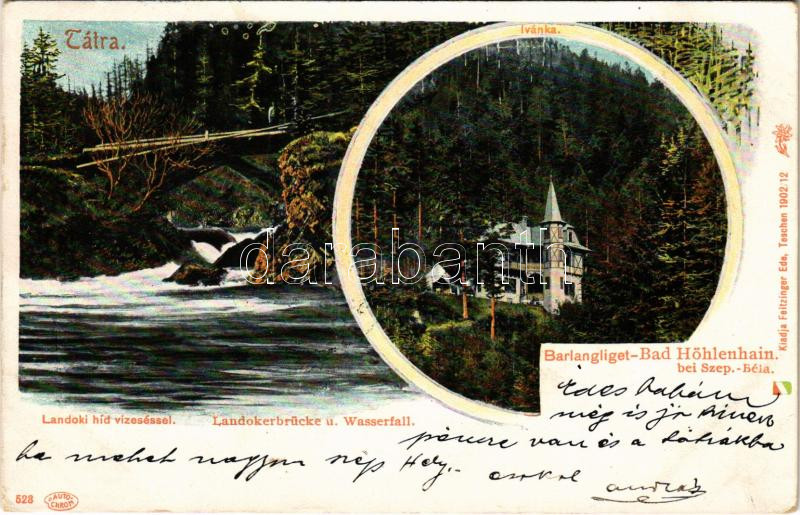 Tátra.
Ivánka.
Kiadja Feitzinger Ede, Teschen 1902.12
darabanth
Barlangliget-Bad Höhlenhain.
bei Szep.-Béla.
Landoki híd vizeséssel. Landokerbrücke u. Wasserfall.
Édes babám
még is jó kinek
pénze van és a Tátrákba
ba mehet nagyon szép Hely..
csokol
András
528
AUTO-CHROM